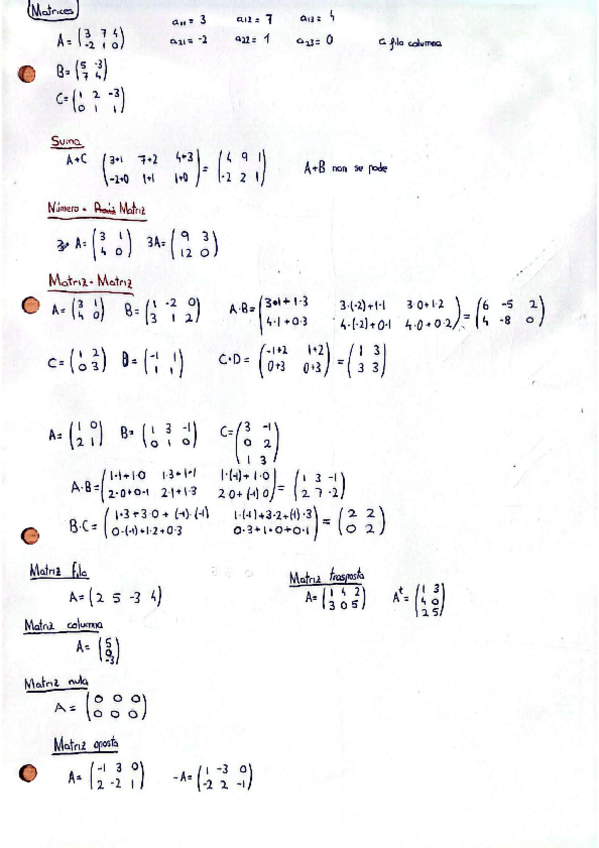 Matrices
a₁₁ = 3 a₁₂ = 7 a₁₃ = 4
A = (3 7 4
-2 1 0)
a₂₁ = -2 a₂₂ = 1 a₂₃ = 0 fila columna
B = (5 -3
7 4)
C = (1 2 -3
0 1 1)
Suma
A+C (3+1 7+2 4+3
-2+0 1+1 1+0) = (4 9 1
-2 2 1) A+B non se pode
Número - Matriz
A = (3 1
4 0) 3A = (9 3
12 0)
Matriz - Matriz
A = (3 1
4 0) B = (1 -2 0
3 1 2) A·B = (3·1+1·3 3·(-2)+1·1 3·0+1·2
4·1+0·3 4·(-2)+0·1 4·0+0·2) = (6 -5 2
4 -8 0)
C = (1 2
0 3) D = (-1 1
1 1) C·D = (-1+2 1+2
0+3 0+3) = (1 3
3 3)
A = (1 0
2 1) B = (1 3 -1
0 1 0) C = (3 -1
0 2
1 3)
A·B = (1·1+1·0 1·3+1·1 1·(-1)+1·0
2·0+0·1 2·1+1·3 2·0+(-1)·0) = (1 3 -1
2 7 -2)
B·C = (1·3+3·0+(-1)·(-1) 1·(-1)+3·2+(1)·3
0·(-1)+1·2+0·3 0·3+1·0+0·1) = (2 2
0 2)
Matriz fila
A = (2 5 -3 4)
Matriz trasposta
A = (1 4 2
3 0 5) Aᵗ = (1 3
4 0
2 5)
Matriz columna
A = (5
0
-3)
Matriz nula
A = (0 0 0
0 0 0)
Matriz oposta
A = (-1 3 0
2 -2 1) -A = (1 -3 0
-2 2 -1)